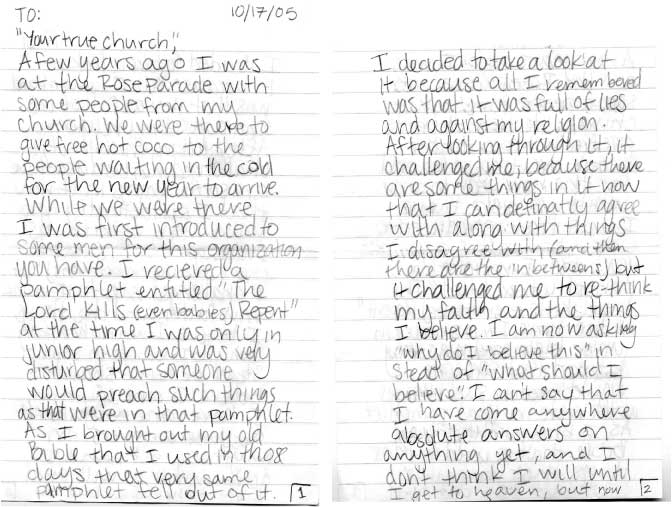 TO: 10/17/05
"Your true church,"
A few years ago I was
at the Rose Parade with
some people from my
church. We were there to
give free hot coco to the
people waiting in the cold
for the new year to arrive.
While we were there
I was first introduced to
some men for this organization
you have. I recieved a
pamphlet entitled "The
Lord Kills (even babies) Repent"
at the time I was only in
junior high and was very
disturbed that someone
would preach such things
as that were in that pamphlet.
As I brought out my old
Bible that I used in those
days that very same
pamphlet fell out of it. 1
I decided to take a look at
it because all I remembered
was that it was full of lies
and against my religion.
After looking through it, it
challenged me, because there
are some things in it now
that I can definatly agree
with along with things
I disagree with (and then
there are the in betweens) but
it challenged me to re-think
my faith, and the things
I believe. I am now asking
"why do I believe this" in
stead of "what should I
believe". I can't say that
I have come anywhere
absolute answers on
anything yet, and I
don't think I will until
I get to heaven, but now 2